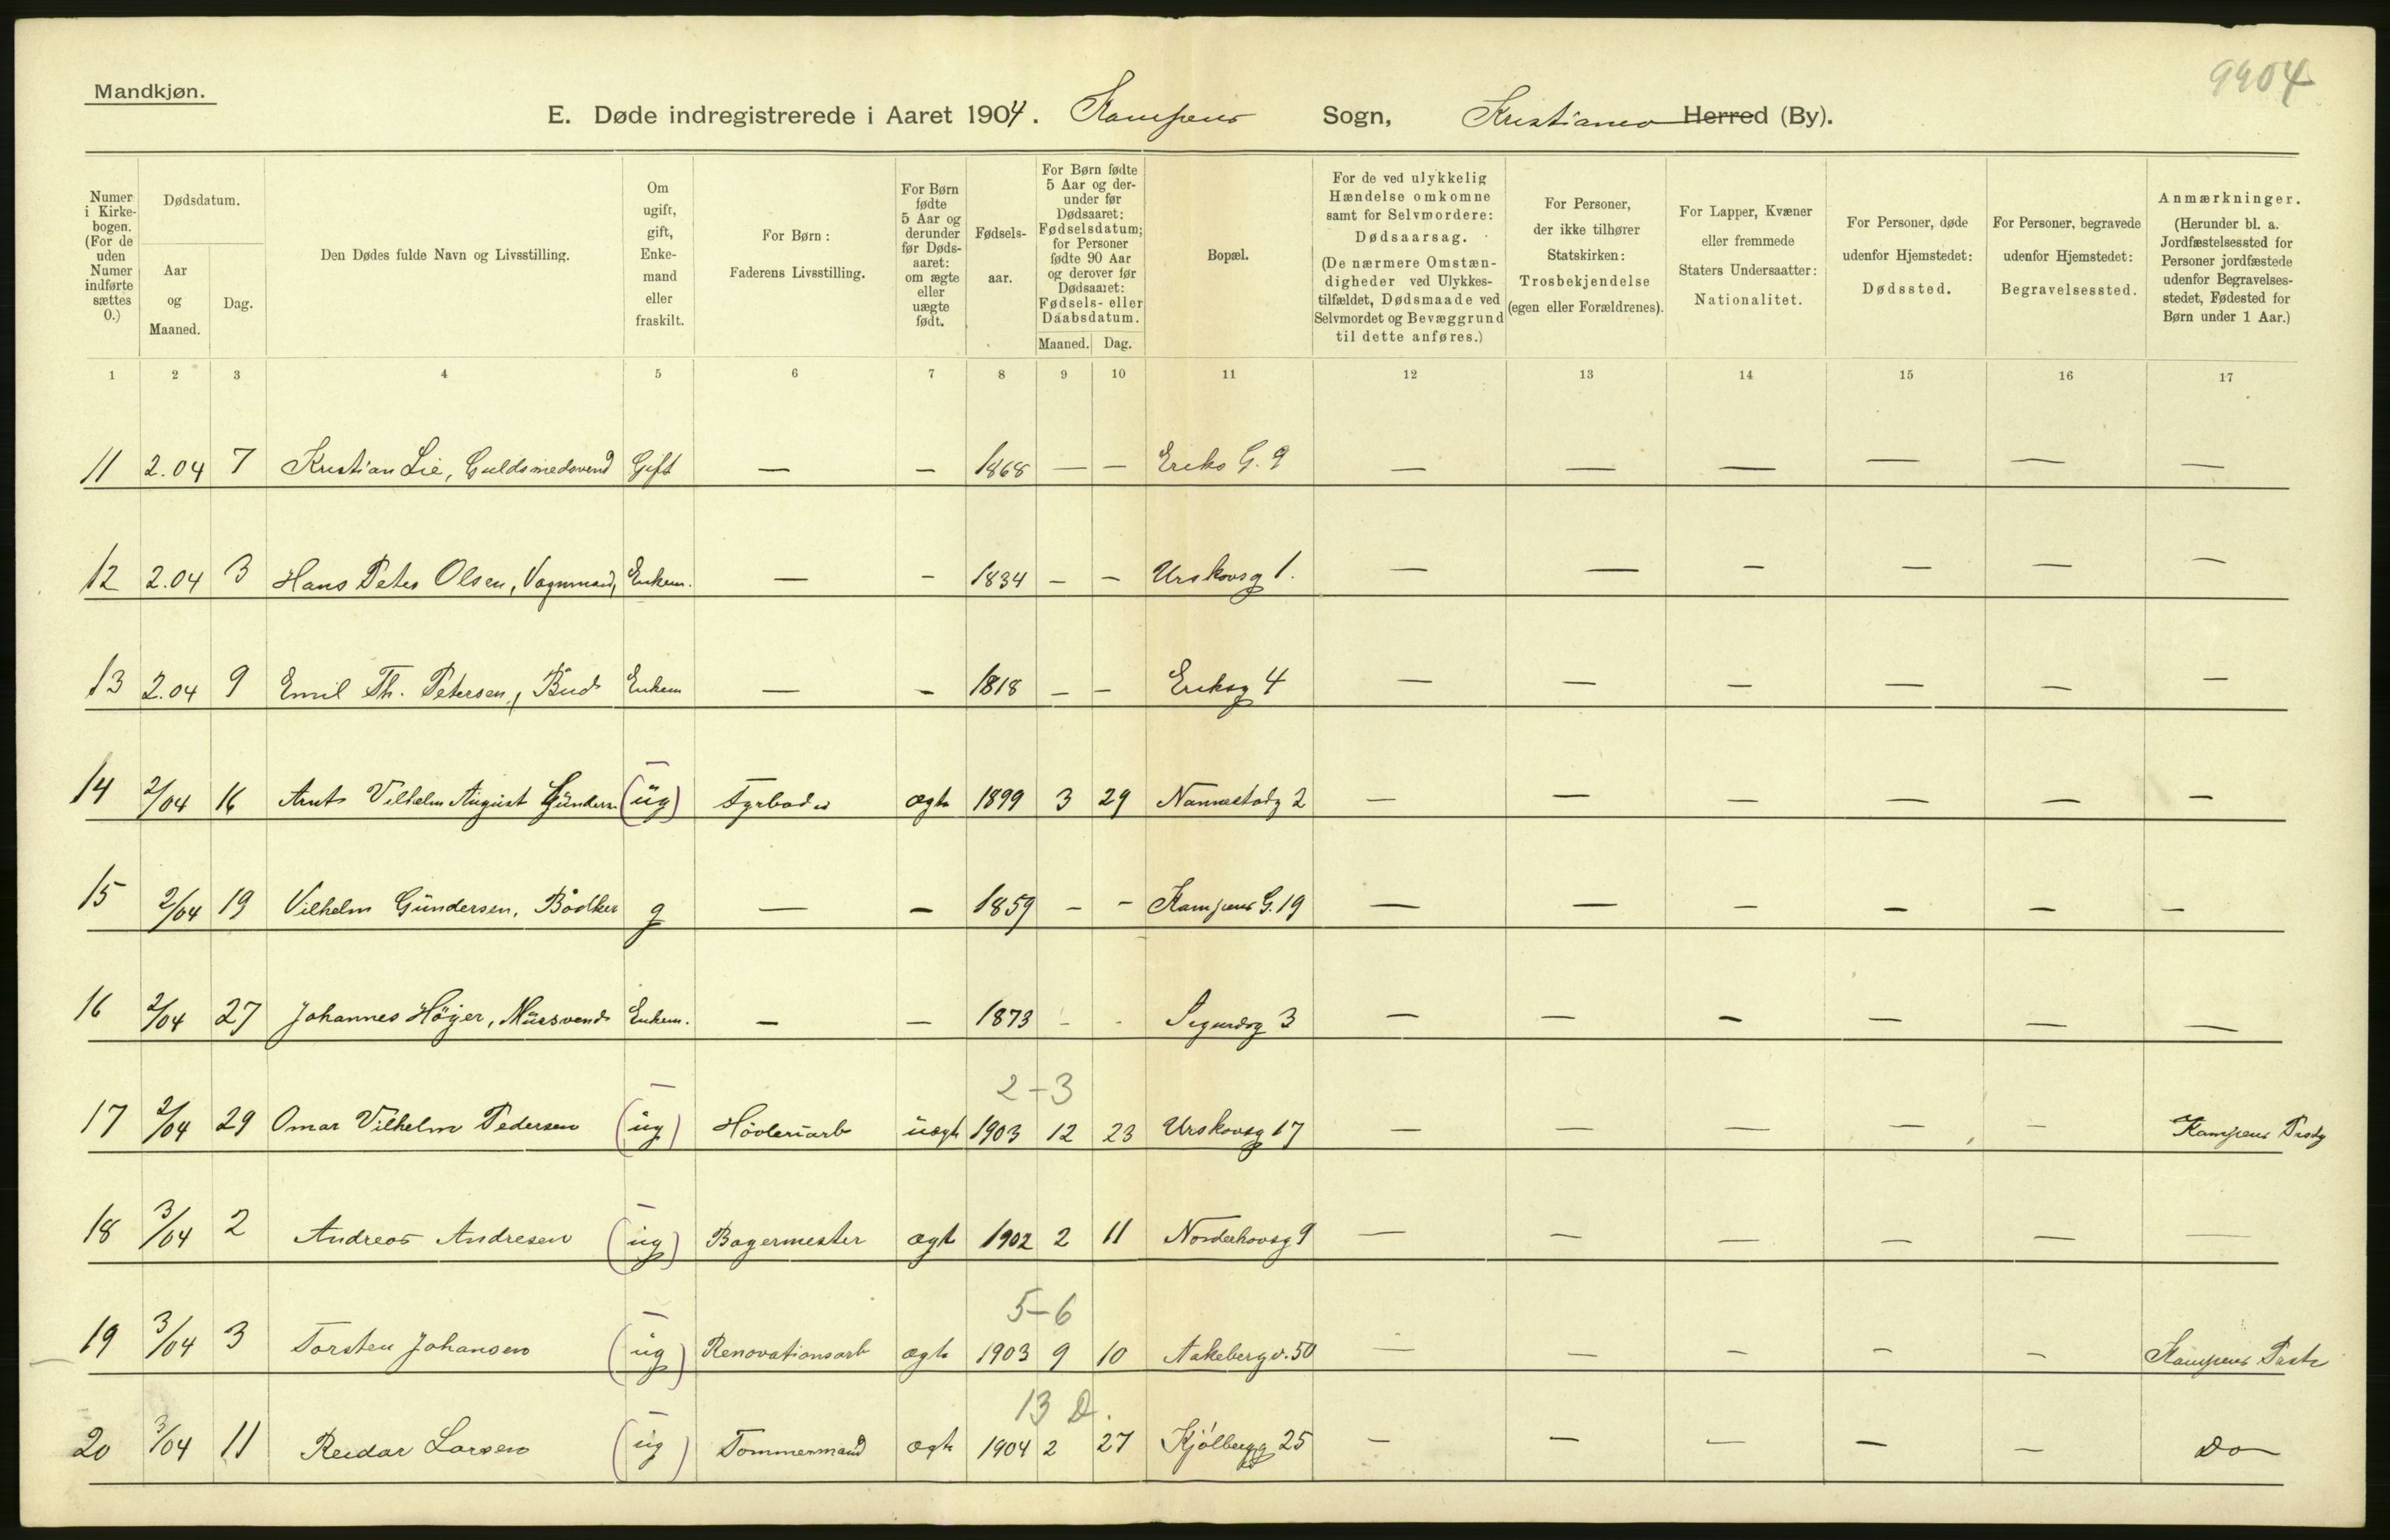 Mandkjøn.
9904
E. Døde indregistrerede i Aaret 1904. Kampens Sogn, Kristiania Herred (By).
Numer i Kirkebogen. (For de uden Numer indførte sættes 0.)
Dødsdatum.
Aar og Maaned.
Dag.
Den Dødes fulde Navn og Livsstilling.
Om ugift, gift, Enkemand eller fraskilt.
For Børn: Faderens Livsstilling.
For Børn fødte 5 Aar og derunder før Dødsaaret: om ægte eller uægte født.
Fødselsaar.
For Børn fødte 5 Aar og derunder før Dødsaaret: Fødselsdatum; for Personer fødte 90 Aar og derover før Dødsaaret: Fødsels- eller Daabsdatum.
Maaned. Dag.
Bopæl.
For de ved ulykkelig Hændelse omkomne samt for Selvmordere: Dødsaarsag. (De nærmere Omstændigheder ved Ulykkestilfældet, Dødsmaade ved Selvmordet og Bevæggrund til dette anføres.)
For Personer, der ikke tilhører Statskirken: Trosbekjendelse (egen eller Forældrenes).
For Lapper, Kvæner eller fremmede Staters Undersaatter: Nationalitet.
For Personer, døde udenfor Hjemstedet: Dødssted.
For Personer, begravede udenfor Hjemstedet: Begravelsessted.
Anmærkninger. (Herunder bl. a. Jordfæstelsessted for Personer jordfæstede udenfor Begravelsesstedet, Fødested for Børn under 1 Aar.)
1 2 3 4 5 6 7 8 9 10 11 12 13 14 15 16 17
11 2.04 7 Kristian Lie, Guldsmedsvend Gift — — 1868 — — Eriks G. 9 — — — — — —
12 2.04 3 Hans Peter Olsen, Vognmand, Enkem. — — 1834 — — Urskovsg 1. — — — — — —
13 2.04 9 Emil Th. Petersen, Bud Enkem — — 1818 — — Eriksg 4 — — — — — —
14 2/04 16 Arnt Vilhelm August Gundersen (ug) Fyrbøder ægte 1899 3 29 Nannestadg 2 — — — — — —
15 2/04 19 Vilhelm Gundersen, Bødker g — — 1859 — — Kampens G. 19 — — — — — —
16 2/04 27 Johannes Höyer, Mursvend Enkem. — — 1873 — — Sigurdsg 3 — — — — — —
2-3
17 2/04 29 Omar Vilhelm Pedersen (ug) Høvleriarb uægte 1903 12 23 Urskovsg 17 — — — — — Kampens Prstg
18 3/04 2 Andreas Andresen (ug) Bagermester ægte 1902 2 11 Norderhovsg 9 — — — — — —
5-6
19 3/04 3 Torsten Johansen (ug) Renovationsarb ægte 1903 9 10 Aakebergv. 50 — — — — — Kampens Prstg
13 D.
20 3/04 11 Reidar Larsen (ug) Tømmermand ægte 1904 2 27 Kjølbergg 25 — — — — — Do